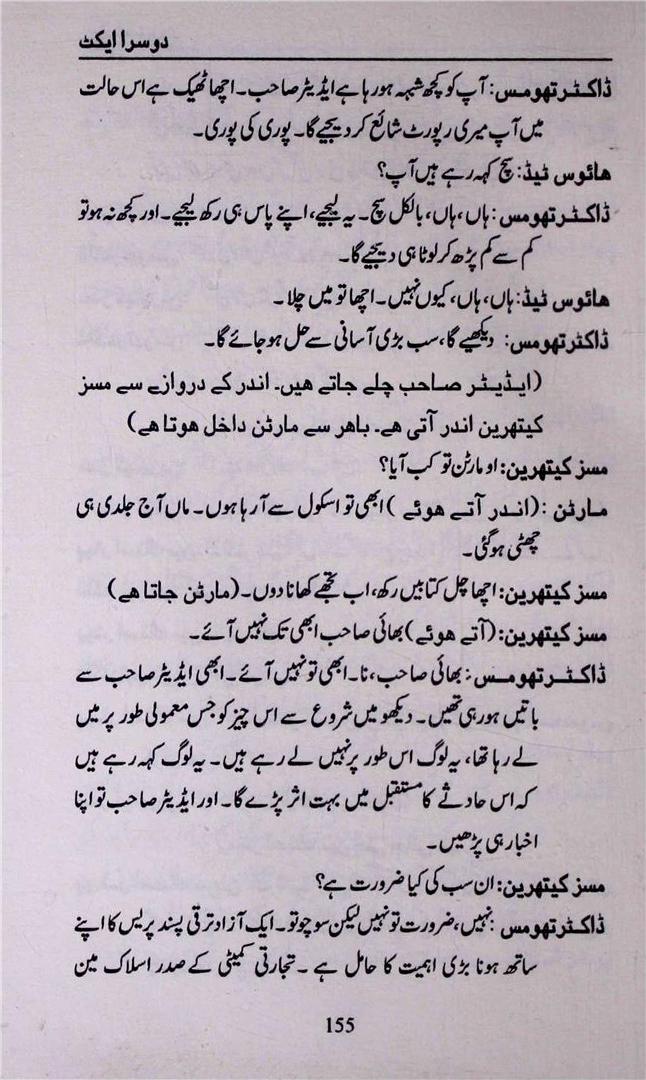 دوسرا ایکٹ
ڈاکٹر تھومس: آپ کو کچھ شبہہ ہو رہا ہے ایڈیٹر صاحب۔ اچھا ٹھیک ہے اس حالت
میں آپ میری رپورٹ شائع کر دیجیے گا۔ پوری کی پوری۔
ھائوس ٹیڈ: سچ کہہ رہے ہیں آپ؟
ڈاکٹر تھومس: ہاں، ہاں، بالکل سچ۔ یہ لیجیے، اپنے پاس ہی رکھ لیجیے۔ اور کچھ نہ ہو تو
کم سے کم پڑھ کر لوٹا ہی دیجیے گا۔
ھائوس ٹیڈ: ہاں، ہاں، کیوں نہیں۔ اچھا تو میں چلا۔
ڈاکٹر تھومس: دیکھیے گا، سب بڑی آسانی سے حل ہو جائے گا۔
(ایڈیٹر صاحب چلے جاتے ھیں۔ اندر کے دروازے سے مسز
کیتھرین اندر آتی ھے۔ باھر سے مارٹن داخل ھوتا ھے)
مسز کیتھرین: او مارٹن تو کب آیا؟
مارٹن : (اندر آتے ھوئے) ابھی تو اسکول سے آ رہا ہوں۔ ماں آج جلدی ہی
چھٹی ہو گئی۔
مسز کیتھرین: اچھا چل کتابیں رکھ، اب تجھے کھانا دوں۔ (مارٹن جاتا ھے)
مسز کیتھرین: (آتے ھوئے) بھائی صاحب ابھی تک نہیں آئے۔
ڈاکٹر تھومس: بھائی صاحب، نا۔ ابھی تو نہیں آئے۔ ابھی ایڈیٹر صاحب سے
باتیں ہو رہی تھیں۔ دیکھو میں شروع سے اس چیز کو جس معمولی طور پر میں
لے رہا تھا، یہ لوگ اس طور پر نہیں لے رہے ہیں۔ یہ لوگ کہہ رہے ہیں
کہ اس حادثے کا مستقبل میں بہت اثر پڑے گا۔ اور ایڈیٹر صاحب تو اپنا
اخبار ہی پڑھیں۔
مسز کیتھرین: ان سب کی کیا ضرورت ہے؟
ڈاکٹر تھومس: نہیں، ضرورت تو نہیں لیکن سوچو تو۔ ایک آزاد ترقی پسند پریس کا اپنے
ساتھ ہونا بڑی اہمیت کا حامل ہے ۔ تجارتی کمیٹی کے صدر اسلاک مین
155